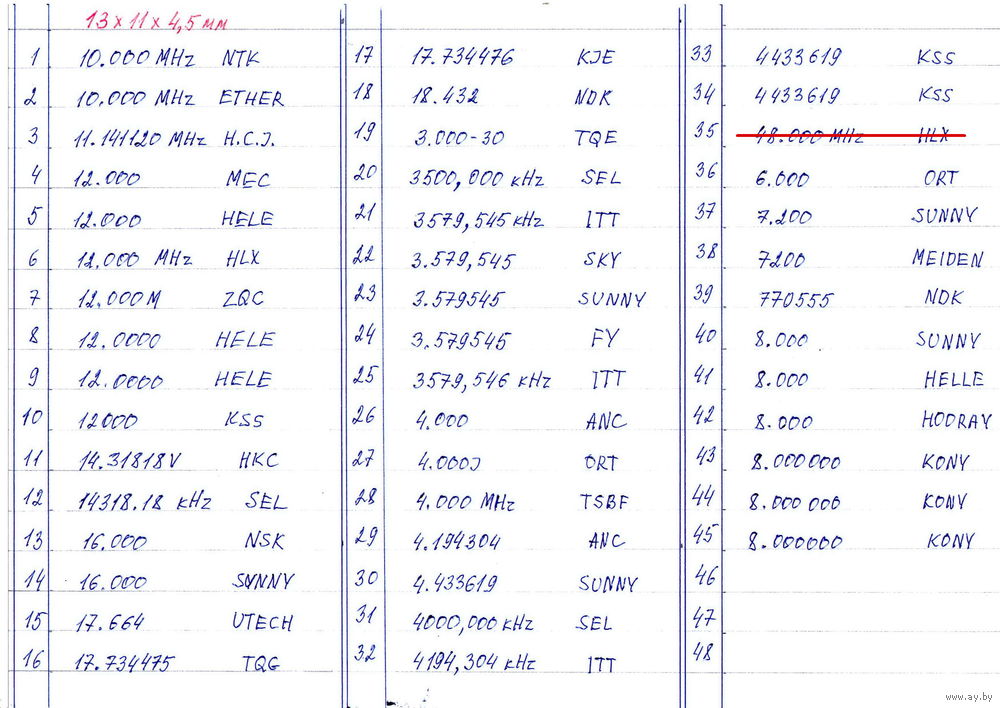 13 x 11 x 4,5 мм
1 10.000 MHz NTK
2 10.000 MHz ETHER
3 11.141120 MHz H.C.J.
4 12.000 MEC
5 12.000 HELE
6 12.000 MHz HLX
7 12.000M ZQC
8 12.0000 HELE
9 12.0000 HELE
10 12000 KSS
11 14.31818V HKC
12 14318.18 kHz SEL
13 16.000 NSK
14 16.000 SUNNY
15 17.664 UTECH
16 17.734475 TQG
17 17.734476 KJE
18 18.432 NDK
19 3.000-30 TQE
20 3500,000 kHz SEL
21 3579,545 kHz ITT
22 3.579,545 SKY
23 3.579545 SUNNY
24 3.579545 FY
25 3579,546 kHz ITT
26 4.000 ANC
27 4.000J ORT
28 4.000 MHz TSBF
29 4.194304 ANC
30 4.433619 SUNNY
31 4000,000 kHz SEL
32 4194,304 kHz ITT
33 4433619 KSS
34 4433619 KSS
35 48.000 MHz HLX
36 6.000 ORT
37 7.200 SUNNY
38 7200 MEIDEN
39 770555 NDK
40 8.000 SUNNY
41 8.000 HELLE
42 8.000 HOORAY
43 8.000000 KONY
44 8.000 000 KONY
45 8.000000 KONY
46
47
48
www.ay.by